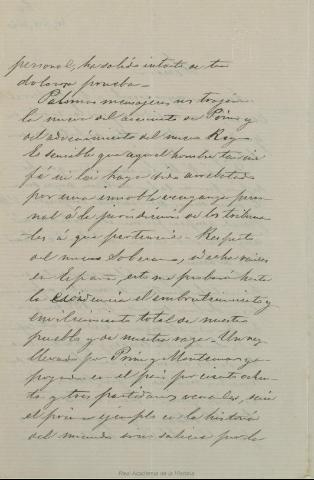 personal, ha salido intacto de tan
dolorosa prueba.
Palomas mensajeras nos trajeron
la nueva del asesinato de Prim y
del advenimiento del nuevo Rey
Es sensible que aquel hombre tan
fé ni lei haya sido arrebatado
por una innoble venganza perso-
nal á la jurisdiccion de los tribuna-
les á que pertenecia. Respecto
del nuevo Soberano, si echa raices
en el pais, esto me probará hasta
la evidencia el embrutecimiento y
envilecimiento total de nuestro
pueblo y de nuestra raza. Un rey
llevado por Prim y Montemar y a-
poyado en el pais por ciento ochen-
ta y tres partidarios venales, sería
el primer ejemplo en la historia
del mundo
Real Academia de la Historia